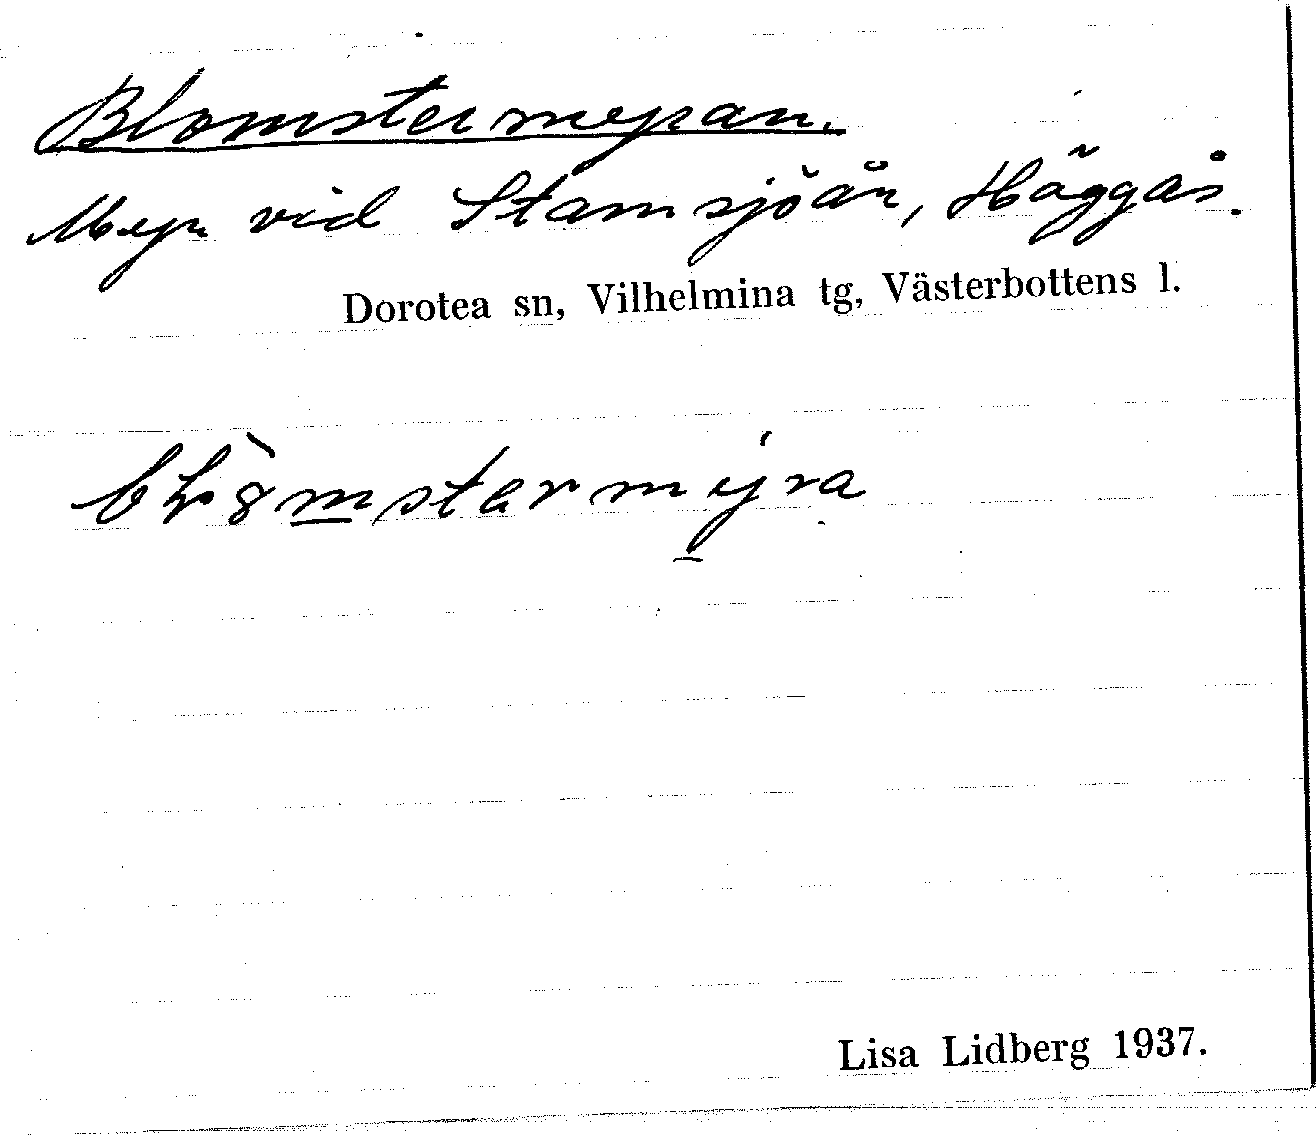 Blomstermyran.
Myr vid Stamsjöån, Häggås.
Dorotea sn, Vilhelmina tg, Västerbottens l.
Lisa Lidberg 1937.